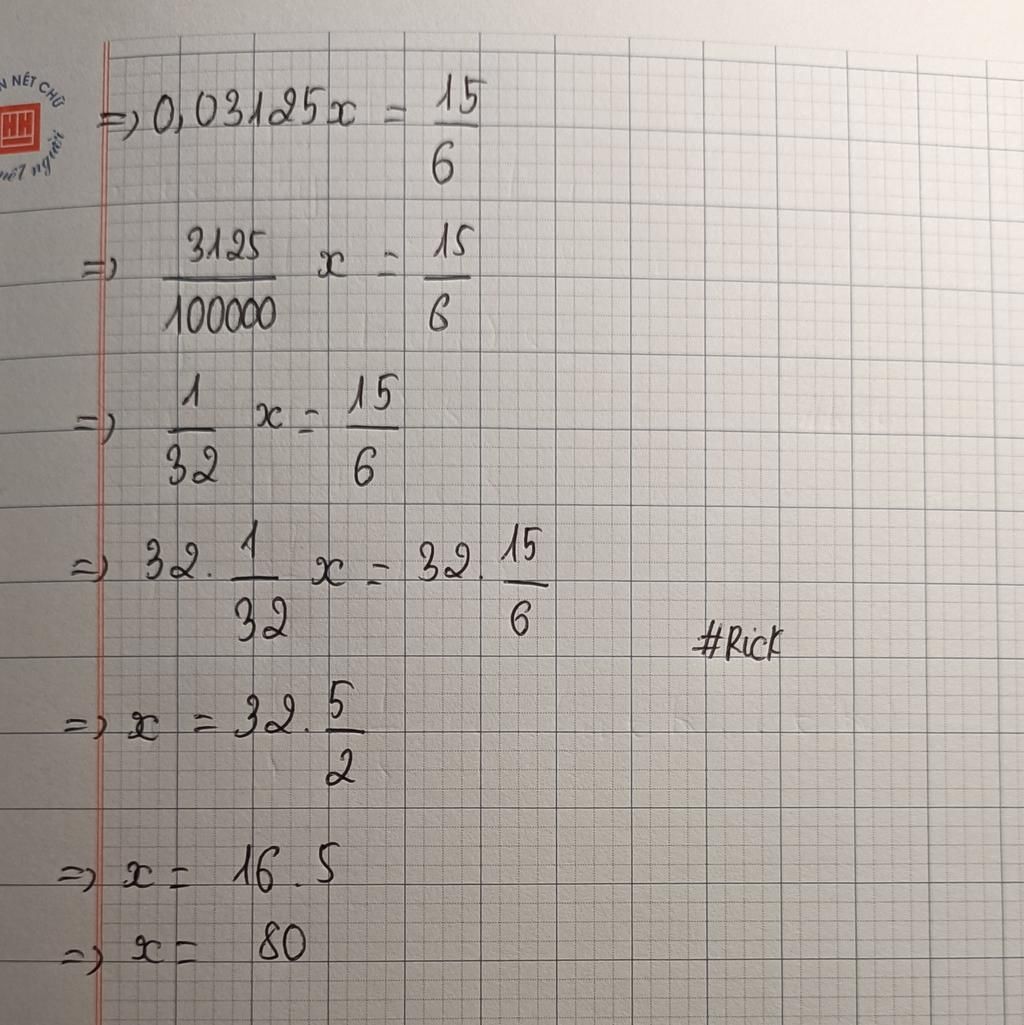 N NÉT CHỮ
HH
nết người
=> 0,03125x = 15/6
=> 3125/100000 x = 15/6
=> 1/32 x = 15/6
=> 32 . 1/32 x = 32 . 15/6
#Rick
=> x = 32 . 5/2
=> x = 16 . 5
=> x = 80